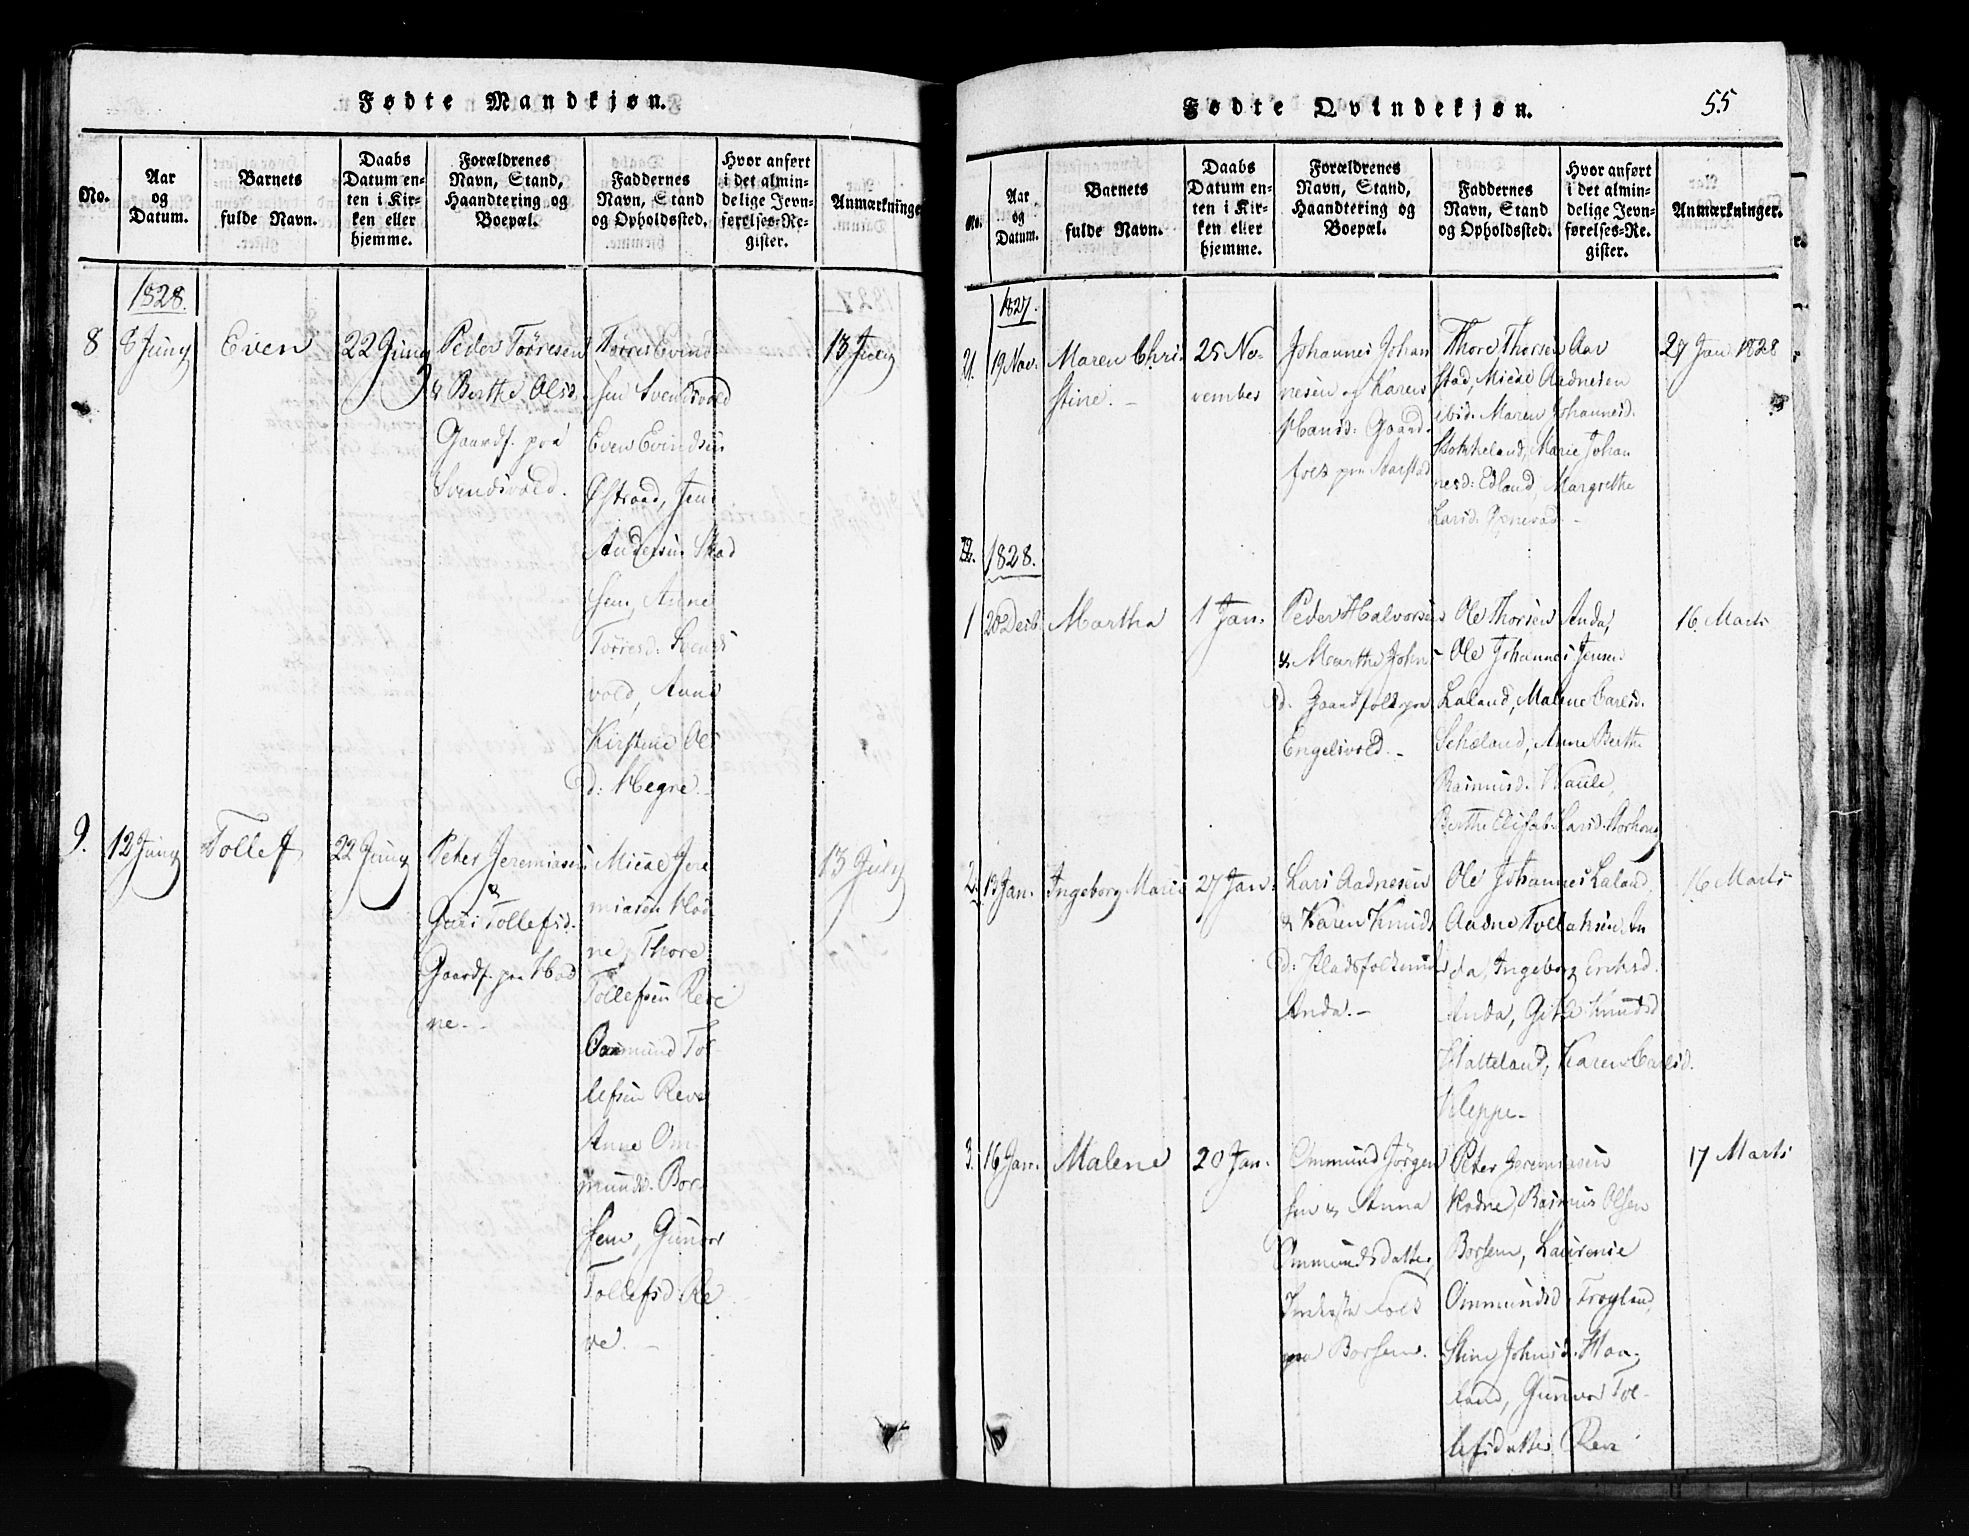 Fødte Mandkjøn.
No.
Aar
og
Datum.
Barnets
fulde Navn.
Daabs
Datum en-
ten i Kir-
ken eller
hjemme.
Forældrenes
Navn, Stand,
Haandtering og
Boepæl.
Faddernes
Navn, Stand
og Opholdssted.
Hvor anført
i det almin-
delige Jevn-
førelses-Re-
gister.
Anmærkninge
1828.
8
8 Juny
Even
22 Juny
Peder Törresen
& Berthe Olsd.
Gaardf. paa
Svendsvold.
Törres Evind
sen Svendsvold
Even Evindsen
Østraad, Jens
Andersen Skad
sem, Anne
Törresd: Svends
vold, Anne
Kirstine Ols
d: Hegre.
13 July
9.
12 Juny
Tollef
22 Juny
Peter Jeremiasen
&
Guri Tollefsd.
Gaardf. paa Hod
ne.-
Micael Jere
miasen Hod
ne, Thore
Tollefsen Reve
Ommund Tol-
lefsen Reve
Anne Om-
mundsd. Bor-
sem, Gunvor
Tollefsd: Re
ve. -
13 July
Fødte Qvindekjøn.
55
No.
Aar
og
Datum.
Barnets
fulde Navn.
Daabs
Datum en-
ten i Kir-
ken eller
hjemme.
Forældrenes
Navn, Stand,
Haandtering og
Boepæl.
Faddernes
Navn, Stand
og Opholdssted.
Hvor anført
i det almin-
delige Jevn-
førelses-Re-
gister.
Anmærkninger.
1827.
21.
19 Nov.
Maren Chri-
stine. -
25 No-
vember
Johannes Johan
nesen og Karen
Hansd: Gaard-
folk paa Aarstad
Thore Thorsen Aar
stad, Micael Aadnesen
ibid. Maren Johannesd.
Stokkeland, Marie Johan
nesd: Edland, Margrethe
Larsd.
27 Jan 1828
22.
1828.
1
20 Decb.
Martha
1 Jan.
Peder Halvorsen
& Marthe Johns
d. Gaardfolk paa
Engelsvold.-
Ole Thorsen Anda,
Ole Johannes Jensen
Laland, Malene Carlsd.
Sehæland, Anne Berth.
Rasmusd.
Berthe Elisab. Larsd. Storhoug
16 Marts
2.
13 Jan.
Ingeborg Marie
27 Jan.
Lars Aadnesen
& Karen Knuds
d: Pladsfolk under
Anda.-
Ole Johannes Laland,
Aadne Tollaksen An
da, Ingeborg Erichsd.
Anda, Gitle Knudsd
Hatteland, Karen Carlsd.
Kleppe-
16 Marts
3.
16 Jan.
Malene
20 Jan.
Ommund Jörgen
sen & Anna
Ommundsdatter,
Inderste Folk
paa Borsem.
Peter Jeremiasen
Hodne, Rasmus Olsen
Borsem, Laurense
Ommundsd. Trogland,
Stine Johnsd. Haa-
land, Gunvor Tol-
lefsdatter Reve
17 Marts